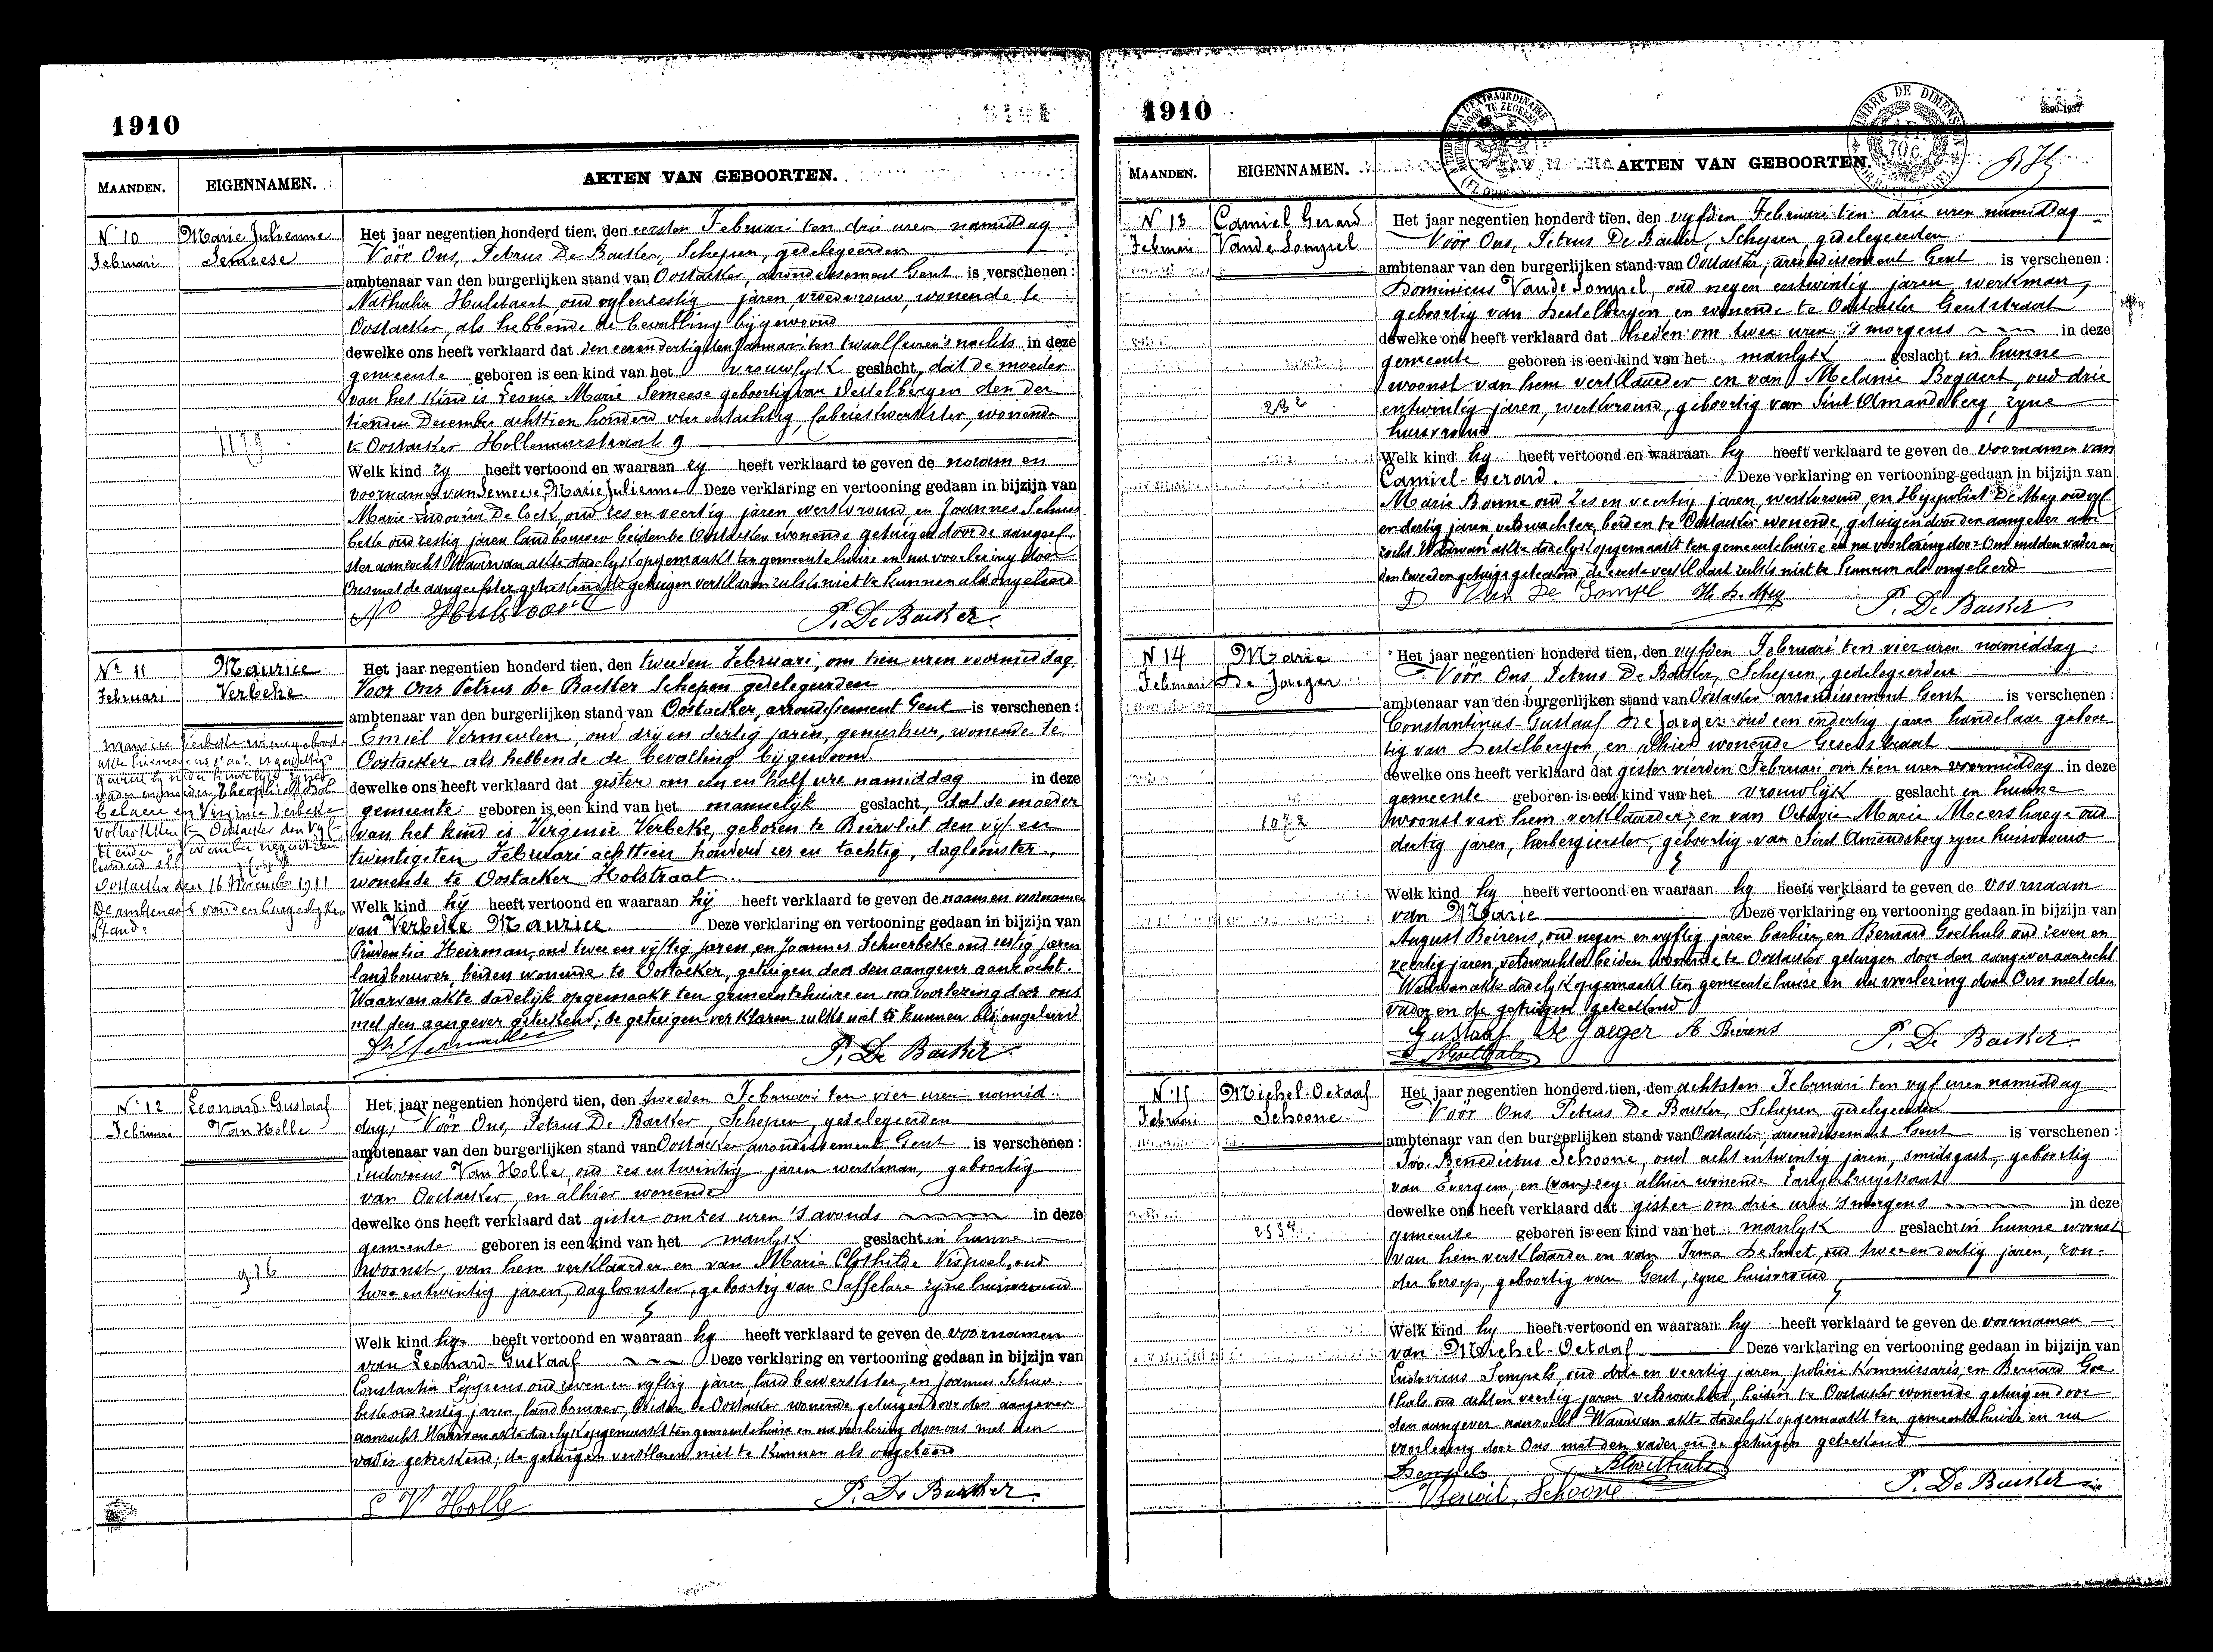 1910
MAANDEN.
EIGENNAMEN.
AKTEN VAN GEBOORTEN.
N° 10
Februari
Marie Julienne
Semeese
Het jaar negentien honderd tien, den eersten Februari ten drie uren namiddag
Vóór Ons, Petrus De Backer, Schepen, gedelegeerden
ambtenaar van den burgerlijken stand van Oostacker, arrondissement Gent is verschenen:
Nathalia Hulstaert, oud vyfenzestig jaren, vroedvrouw, wonende te
Oostacker, als hebbende de bevalling bijgewoond
dewelke ons heeft verklaard dat den eenendertigsten Januari ten twaalf uren 's nachts in deze
gemeente geboren is een kind van het vrouwlyk geslacht, dat de moeder
van het kind is Leonie Marie Semeese geboortig van Destelbergen den der
tienden December achttien honderd vier entachtig, fabriekwerkster, wonende
te Oostacker Hollenaarstraat 9
1179
Welk kind zy heeft vertoond en waaraan zy heeft verklaard te geven de naam en
voornamen van Semeese, Marie Julienne Deze verklaring en vertooning gedaan in bijzijn van
Marie-Ludovica De Cock, oud zes en veertig jaren, werkvrouw, en Joannes Schuer
beke oud zestig jaren landbouwer beiden te Oostacker wonende getuigen door de aangeef-
ster aanzocht Waarvan akte dadelyk opgemaakt ten gemeentehuize en na voorlezing door
Ons met de aangeefster geteekend, de getuigen verklaren zulks niet te kunnen als ongeleerd
P. De Backer
N° 11
Februari
Maurice
Verbeke
Het jaar negentien honderd tien, den tweeden Februari, om tien uren voormiddag
Voor Ons Petrus De Backer Schepen gedelegeerden
ambtenaar van den burgerlijken stand van Oostacker, arrondissement Gent is verschenen:
Emiel Vermeulen, oud drij en dertig jaren, genesheer, wonende te
Oostacker als hebbende de bevalling bijgewoond
dewelke ons heeft verklaard dat gister om een en half ure namiddag in deze
gemeente geboren is een kind van het mannelijk geslacht, dat de moeder
van het kind is Virgenie Verbeke, geboren te Biervliet den vijf en
twintigsten Februari achttien honderd zes en tachtig, dagloonster,
wonende te Oostacker Holstraat
Welk kind hij heeft vertoond en waaraan hij heeft verklaard te geven de naam en voornamen
van Verbeke Maurice. Deze verklaring en vertooning gedaan in bijzijn van
Prudentia Heirman, oud twee en vijftig jaren, en Joannes Schuerbeke oud zestig jaren
landbouwer, beiden wonende te Oostacker, getuigen door den aangever aanzocht.
Waarvan akte dadelijk opgemaakt ten gemeentehuize en na voorlezing door ons
met den aangever geteekend; de getuigen verklaren zulks niet te kunnen als ongeleerd
P. De Backer
Maurice Verbeke wiens geboorte
belaere en Virginie Verbeke
voltrokken te Oostacker den vyf
tienden November negentien
honderd elf
Oostacker den 16 November 1911
De ambtenaar van den burgerlyken
Stand:
N° 12
Februari
Leonard-Gustaaf
Van Holle
Het jaar negentien honderd tien, den tweeden Februari ten vier uren namid-
dag, Vóór Ons, Petrus De Backer, Schepen, gedelegeerden
ambtenaar van den burgerlijken stand van Oostacker, arrondissement Gent is verschenen:
Ludovicus Van Holle, oud zes entwintig jaren werkman, geboortig
van Oostacker, en alhier wonende
dewelke ons heeft verklaard dat gister om zes uren 's avonds in deze
gemeente geboren is een kind van het manlyk geslacht in hunne
woonst, van hem verklaarder en van Marie Clothilde Vispoel, oud
twee entwintig jaren, dagloonster, geboortig van Saffelare zyne huisvrouw
916
Welk kind hy heeft vertoond en waaraan hy heeft verklaard te geven de voornamen
van Leonard-Gustaaf Deze verklaring en vertooning gedaan in bijzijn van
Constantia Sypiens oud zeven en vyftig jaren, landbewerkster, en Joannes Schuer-
beke oud zestig jaren, landbouwer, beiden te Oostacker wonende getuigen door den aangever
aanzocht Waarvan akte dadelyk opgemaakt ten gemeentehuize en na voorlezing door ons met den
vader geteekend; de getuigen verklaren niet te kunnen als ongeleerd
L V Holle
P. De Backer
1910
2890-1937
MAANDEN.
EIGENNAMEN.
AKTEN VAN GEBOORTEN.
N° 13
Februari
Camiel Gerard
Vande Sompel
Het jaar negentien honderd tien, den vyfden Februari ten drie uren namiddag
Vóór Ons, Petrus De Backer, Schepen, gedelegeerden
ambtenaar van den burgerlijken stand van Oostacker, arrondissement Gent is verschenen:
Dominicus Vande Sompel, oud negen entwintig jaren, werkman,
geboortig van Destelbergen en wonende te Oostacker Gentstraat
dewelke ons heeft verklaard dat heden om twee uren 's morgens in deze
gemeente geboren is een kind van het manlyk geslacht in hunne
woonst van hem verklaarder en van Melanie Bogaert, oud drie
entwintig jaren, werkvrouw, geboortig van Sint Amandsberg, zyne
huisvrouw
232
Welk kind hy heeft vertoond en waaraan hy heeft verklaard te geven de voornamen van
Camiel-Gerard. Deze verklaring en vertooning gedaan in bijzijn van
Marie Bonne oud zes en veertig jaren, werkvrouw, en Hippoliet De Mey oud vyf
en dertig jaren, veldwachter, beiden te Oostacker wonende, getuigen door den aangever aan
zocht. Waarvan akte dadelyk opgemaakt ten gemeentehuize en na voorlezing door Ons met den vader en
den tweeden getuige geteekend, de eerste verklaart zulks niet te kunnen als ongeleerd
D Van De Sompel H. D. Mey
P. De Backer
N° 14
Februari
Marie
De Jaeger
Het jaar negentien honderd tien, den vyfden Februari ten vier uren namiddag
Vóór Ons, Petrus De Backer, Schepen, gedelegeerden
ambtenaar van den burgerlijken stand van Oostacker arrondissement Gent is verschenen:
Constantinus-Gustaaf De Jaeger oud een endertig jaren handelaar geboor
tig van Destelbergen, en alhier wonende Gesenstraat
dewelke ons heeft verklaard dat gister vierden Februari om tien uren voormiddag in deze
gemeente geboren is een kind van het vrouwlyk geslacht in hunne
woonst van hem verklaarder, en van Octavie Marie Meerschaege oud
dertig jaren, herbergierster, geboortig van Sint Amandsberg zyne huisvrouw
1072
Welk kind hy heeft vertoond en waaraan hy heeft verklaard te geven de voornaam
van Marie Deze verklaring en vertooning gedaan in bijzijn van
August Beirens, oud negen en vyftig jaren barbier, en Bernard Goethals oud zeven en
veertig jaren, veldwachter beiden wonende te Oostacker getuigen door den aangever aanzocht
Waarvan akte dadelyk opgemaakt ten gemeentehuize en na voorlezing door Ons met den
vader en de getuigen geteekend
Gustaaf De Jaeger A Beirens
BGoethals
P. De Backer
N° 15
Februari
Michel-Octaaf
Schoone
Het jaar negentien honderd tien, den achtsten Februari ten vyf uren namiddag
Vóór Ons Petrus De Backer, Schepen, gedelegeerden
ambtenaar van den burgerlijken stand van Oostacker, arrondissement Gent is verschenen:
Ivo-Benedictus Schoone, oud acht entwintig jaren, smidsgast, geboortig
van Evergem, en alhier wonende Langerbrugstraat
dewelke ons heeft verklaard dat gister om drie uren 's morgens in deze
gemeente geboren is een kind van het manlyk geslacht in hunne woonst
van hem verklaarder en van Irma De Smet, oud twee en dertig jaren, zon-
der beroep, geboortig van Gent, zyne huisvrouw
2334
Welk kind hy heeft vertoond en waaraan hy heeft verklaard te geven de voornamen
van Michel-Octaaf Deze verklaring en vertooning gedaan in bijzijn van
Ludovicus Sempels, oud drie en veertig jaren, policie kommissaris, en Bernard Goe
thals oud achten veertig jaren veldwachter, beiden te Oostacker wonende getuigen door
den aangever aanzocht Waarvan akte dadelyk opgemaakt ten gemeentehuize en na
voorlezing door Ons met den vader en de getuigen geteekend
Sempels BGoethals
Benoit Schoone
P. De Backer